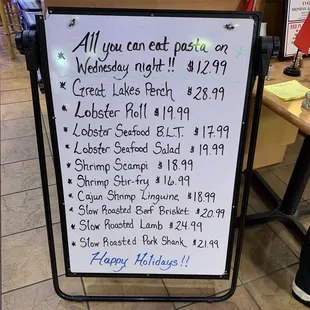 All you can eat pasta on
Wednesday night!! $12.99
* Great Lakes Perch $28.99
* Lobster Roll $19.99
* Lobster Seafood B.L.T. $17.99
* Lobster Seafood Salad $19.99
* Shrimp Scampi $18.99
* Shrimp Stir-fry $16.99
* Cajun Shrimp Linguine $18.99
* Slow Roasted Beef Brisket $20.99
* Slow Roasted Lamb $24.99
* Slow Roasted Pork Shank $21.99
Happy Holidays!!